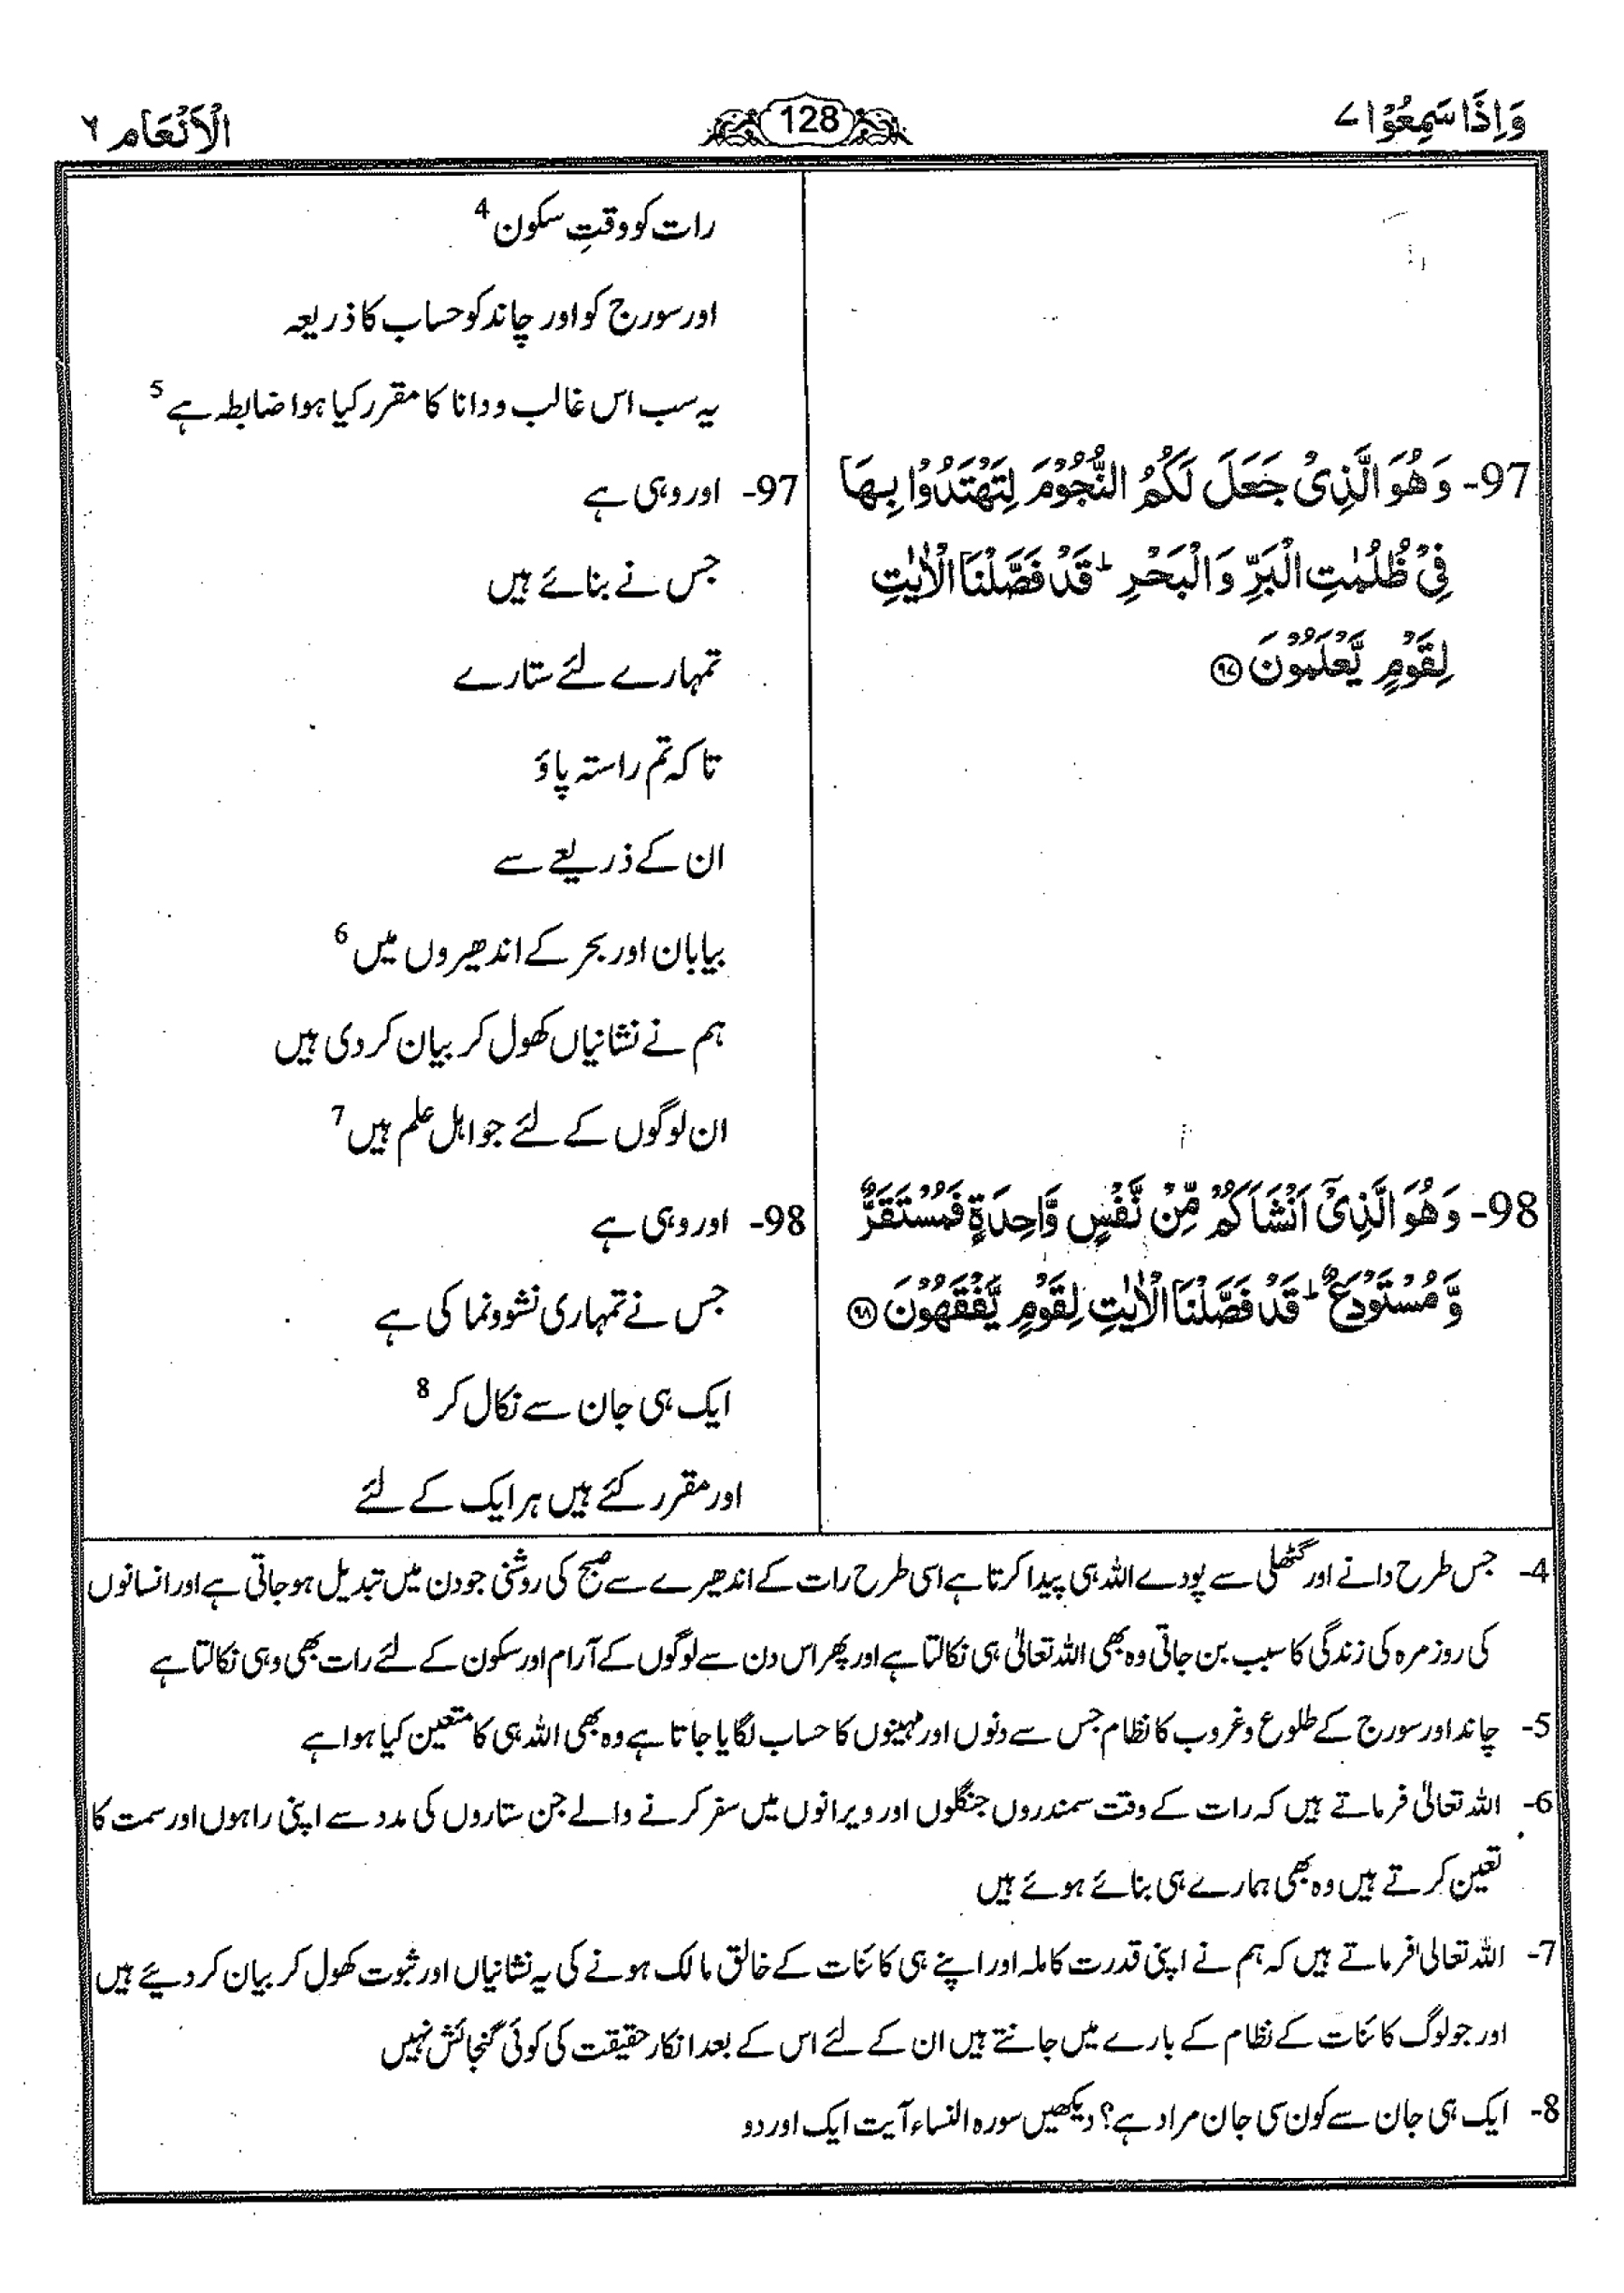 وَاِذَا سَمِعُوْا ۷
128
الْاَنْعَام ٦
97- وَهُوَ الَّذِیْ جَعَلَ لَكُمُ النُّجُوْمَ لِتَهْتَدُوْا بِهَا
فِیْ ظُلُمٰتِ الْبَرِّ وَالْبَحْرِ ؕ قَدْ فَصَّلْنَا الْاٰیٰتِ
لِقَوْمٍ یَّعْلَمُوْنَ ۹۷
98- وَهُوَ الَّذِیْۤ اَنْشَاَكُمْ مِّنْ نَّفْسٍ وَّاحِدَةٍ فَمُسْتَقَرٌّ
وَّمُسْتَوْدَعٌ ؕ قَدْ فَصَّلْنَا الْاٰیٰتِ لِقَوْمٍ یَّفْقَهُوْنَ ۹۸
رات کو وقتِ سکون 4
اور سورج کو اور چاند کو حساب کا ذریعہ
یہ سب اس غالب و دانا کا مقرر کیا ہوا ضابطہ ہے 5
97- اور وہی ہے
جس نے بنائے ہیں
تمہارے لئے ستارے
تاکہ تم راستہ پاؤ
ان کے ذریعے سے
بیابان اور بحر کے اندھیروں میں 6
ہم نے نشانیاں کھول کر بیان کر دی ہیں
ان لوگوں کے لئے جو اہل علم ہیں 7
98- اور وہی ہے
جس نے تمہاری نشوونما کی ہے
ایک ہی جان سے نکال کر 8
اور مقرر کئے ہیں ہر ایک کے لئے
4- جس طرح دانے اور گٹھلی سے پودے اللہ ہی پیدا کرتا ہے اسی طرح رات کے اندھیرے سے صبح کی روشنی جو دن میں تبدیل ہو جاتی ہے اور انسانوں
کی روز مرہ کی زندگی کا سبب بن جاتی وہ بھی اللہ تعالیٰ ہی نکالتا ہے اور پھر اس دن سے لوگوں کے آرام اور سکون کے لئے رات بھی وہی نکالتا ہے
5- چاند اور سورج کے طلوع و غروب کا نظام جس سے دنوں اور مہینوں کا حساب لگایا جاتا ہے وہ بھی اللہ ہی کا متعین کیا ہوا ہے
6- اللہ تعالیٰ فرماتے ہیں کہ رات کے وقت سمندروں جنگلوں اور ویرانوں میں سفر کرنے والے جن ستاروں کی مدد سے اپنی راہوں اور سمت کا
تعین کرتے ہیں وہ بھی ہمارے ہی بنائے ہوئے ہیں
7- اللہ تعالیٰ فرماتے ہیں کہ ہم نے اپنی قدرت کاملہ اور اپنے ہی کائنات کے خالق مالک ہونے کی یہ نشانیاں اور ثبوت کھول کر بیان کر دیئے ہیں
اور جو لوگ کائنات کے نظام کے بارے میں جانتے ہیں ان کے لئے اس کے بعد انکار حقیقت کی کوئی گنجائش نہیں
8- ایک ہی جان سے کون سی جان مراد ہے؟ دیکھیں سورہ النساء آیت ایک اور دو